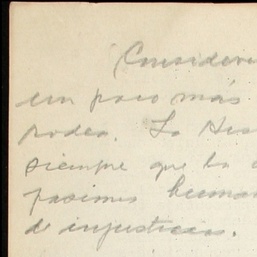 Consider
un poco más
poder. La His
siempre que la
pasiones human
de injusticias.